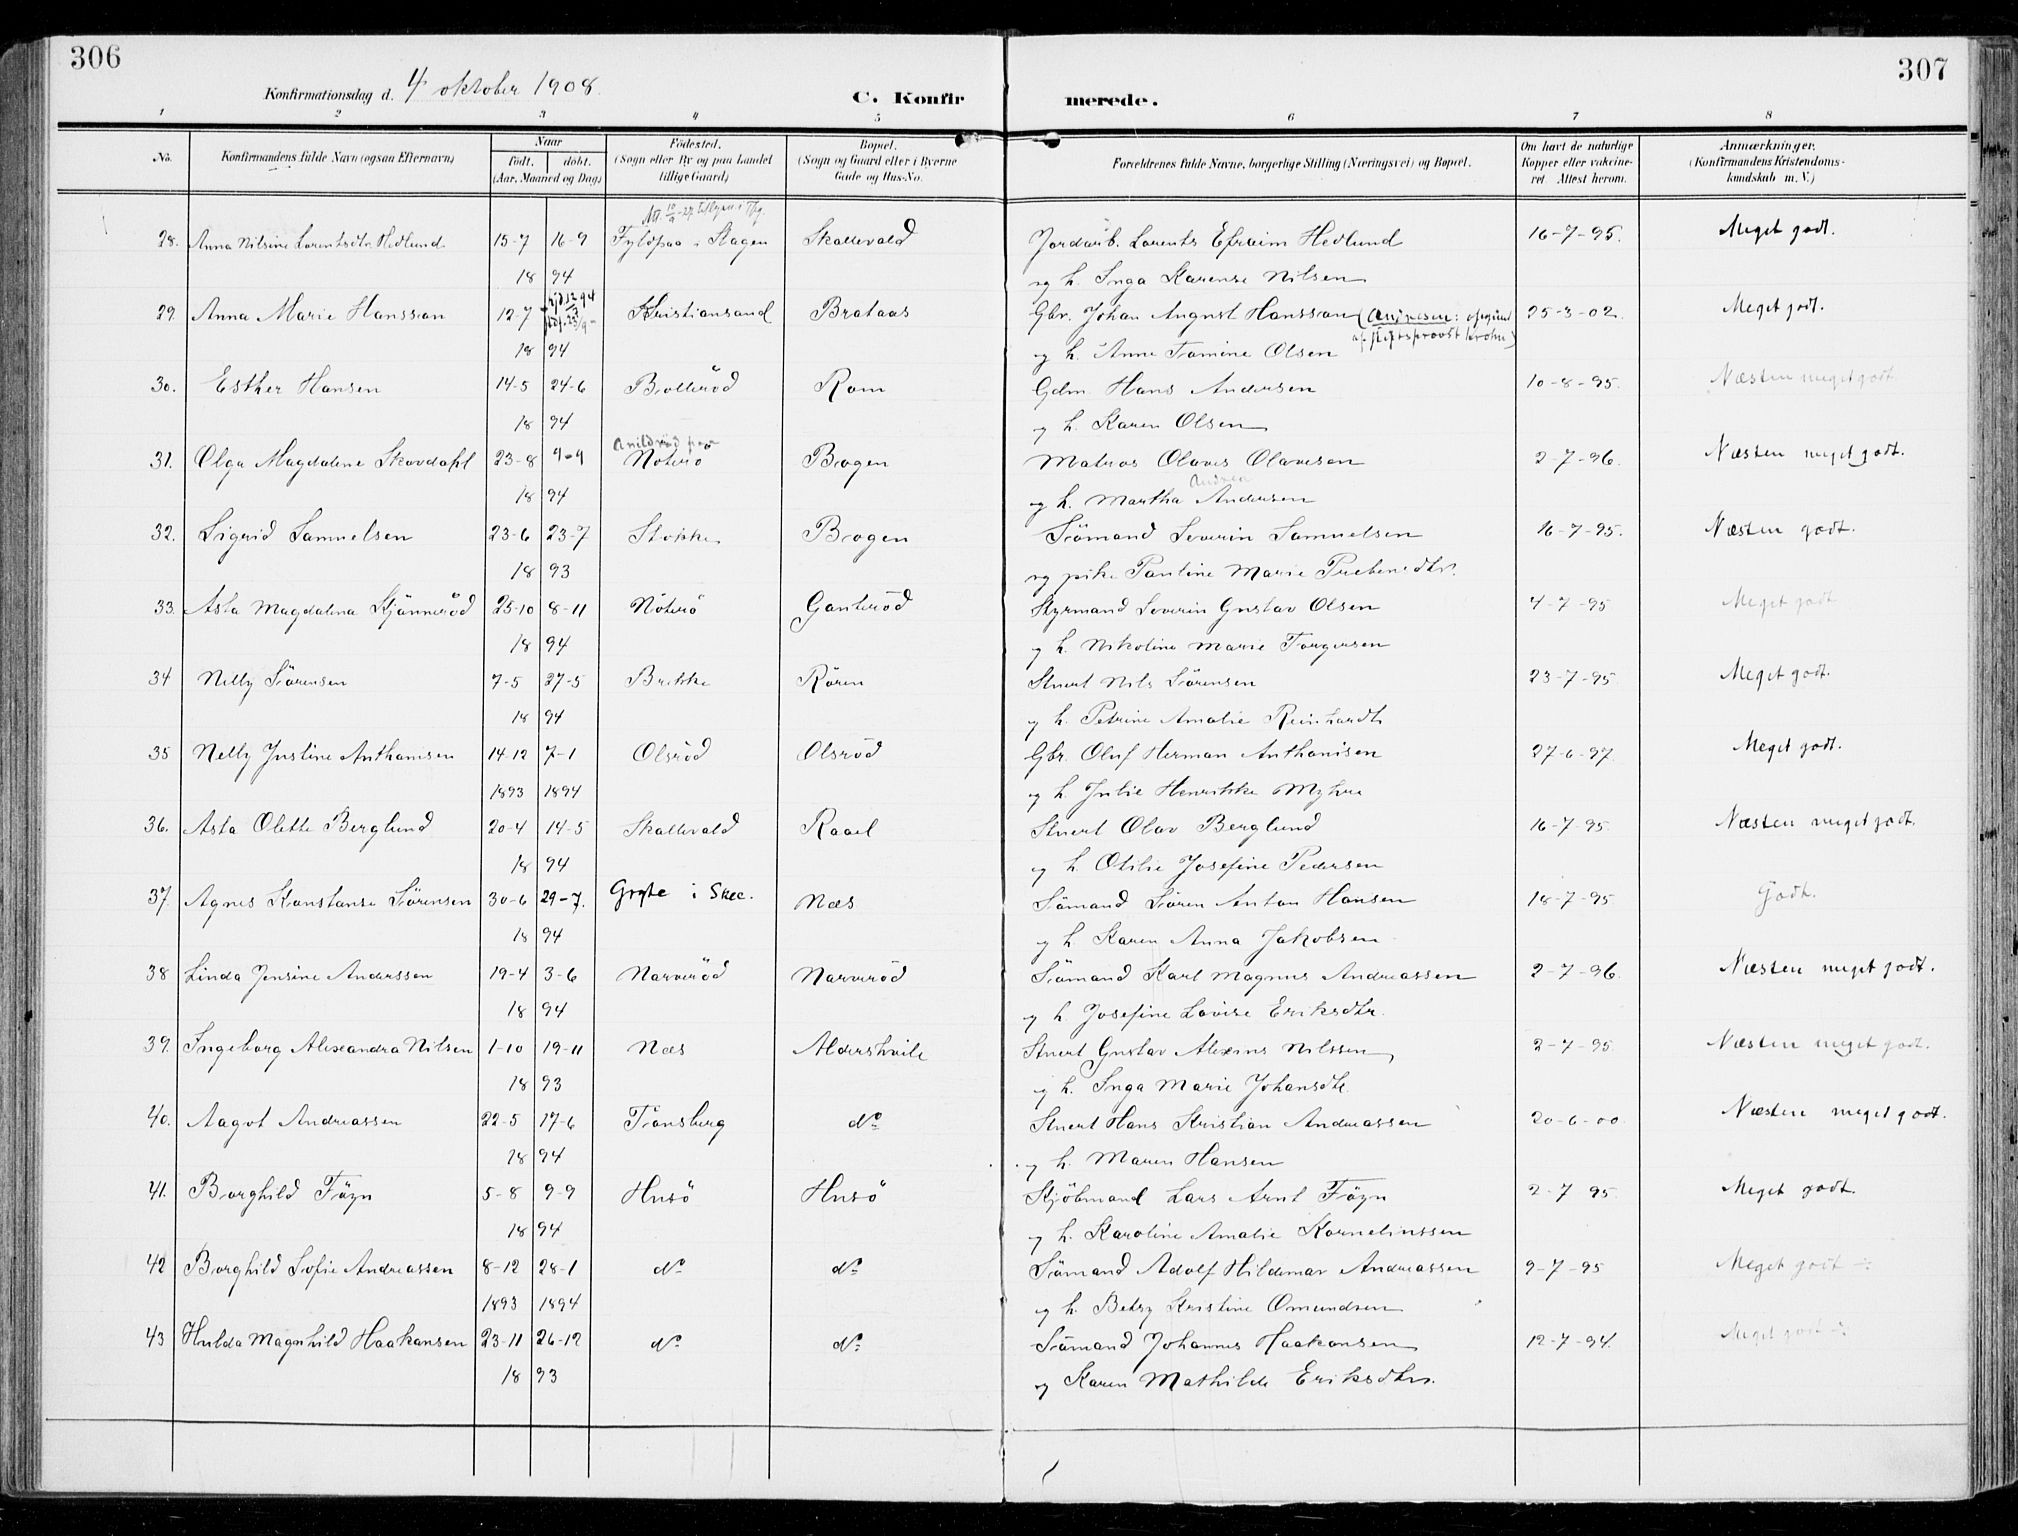 306
307
Konfirmationsdag d. 4 oktober 1908.
C. Konfirmerede.
1 2 3 4 5 6 7 8
No. Konfirmandens fulde Navn (ogsaa Efternavn) Naar født. døbt. (Aar, Maaned og Dag) Fødested. (Sogn eller By og paa Landet tillige Gaard) Bopæl. (Sogn og Gaard eller i Byerne Gade og Hus-No. Forældrenes fulde Navne, borgerlige Stilling (Næringsvei) og Bopæl. Om havt de naturlige Kopper eller vakcineret. Attest herom. Anmærkninger. (Konfirmandens Kristendomskundskab m. V.)
28. Anna Nilsine Lorentsdtr. Hedlund 15-7 16-9 Slagen Skallevold Jordarb. Lorents Efraim Hedlund 16-7-95. Meget godt.
18 94 og h. Inga Karense Nilsen
29. Anna Marie Hanssen 12-7 Kristiansand Brataas Gbr. Johan August Hanssen 25-3-02. Meget godt.
18 94 og h. Anne Tomine Olsen af stiftsprovst Krohn)
30. Esther Hansen 14-5 24-6 Bollerød Rom Gdm. Hans Andersen 10-8-95. Næsten meget godt.
18 94 og h. Karen Olsen
31. Olga Magdalene Skovdahl 23-8 9-9 Nøterö Bogen Matros Olaves Olavesen 2-7-96. Næsten meget godt.
18 94 og h. Martha Andersen
32. Sigrid Samuelsen 23-6 23-7 Stokke Bogen Sömand Severin Samuelsen 16-7-95. Næsten godt.
18 93 og pike Pauline Marie Prebensdtr.
33. Asta Magdalena Kjönneröd 25-10 8-11 Nöterö Ganteröd Styrmand Severin Gustav Olsen 4-7-95 Meget godt
18 94 og h. Nikoline Marie Torgersen
34 Nelly Sörensen 7-5 27-5 Bekke Rören Stuert Nils Sörensen 23-7-95 Meget godt.
18 94 og h. Petrine Amalie Reinhardt
35 Nelly Justine Anthonisen 14-12 7-1 Olsröd Olsröd Gbr. Oluf Herman Anthonisen 27-6-97. Meget godt.
1893 1894 og h. Julie Henrikke Myhre
36. Asta Olette Berglund 20-4 14-5 Skallevold Raael Stuert Olav Berglund 16-7-95. Næsten meget godt.
18 94 og h. Otilie Josefine Pedersen
37. Agnes Konstanse Sörensen 30-6 29-7. i Skee. Næs Sömand Sören Anton Hansen 18-7-95 Godt.
18 94 og h. Karen Anna Jakobsen
38 Linda Jensine Anderssen 19-4 3-6 Narveröd Narveröd Sömand Karl Magnus Andreassen 2-7-96. Næsten meget godt.
18 94 og h. Josefine Lovise Eriksdtr.
39. Ingeborg Alexandra Nilsen 1-10 19-11 Næs Aldershvile Stuert Gustav Alexius Nilssen 2-7-95 Næsten meget godt.
18 93 og h. Inga Marie Johansdtr.
40. Aagot Andreassen 22-5 17-6 Tönsberg do Stuert Hans Kristian Andreassen 20-6-00. Næsten meget godt.
18 94 og h. Maren Hansen
41. Borghild Föyn 5-8 9-9 Husö Husö Kjöbmand Lars Arnt Föyn 2-7 95. Meget godt.
18 94 og h. Karoline Amalie Korneliussen
42 Borghild Sofie Andreassen 8-12 28-1 do do Sömand Adolf Hildemar Andreassen 9-7-95 Meget godt ÷
1893 1894 og h. Betzy Kristine Omundsen
43 Hulda Magnhild Haakonsen 23-11 26-12 do do Sömand Johannes Haakonsen 12-7-94. Meget godt ÷
18 93 og Karen Mathilde Eriksdtr.